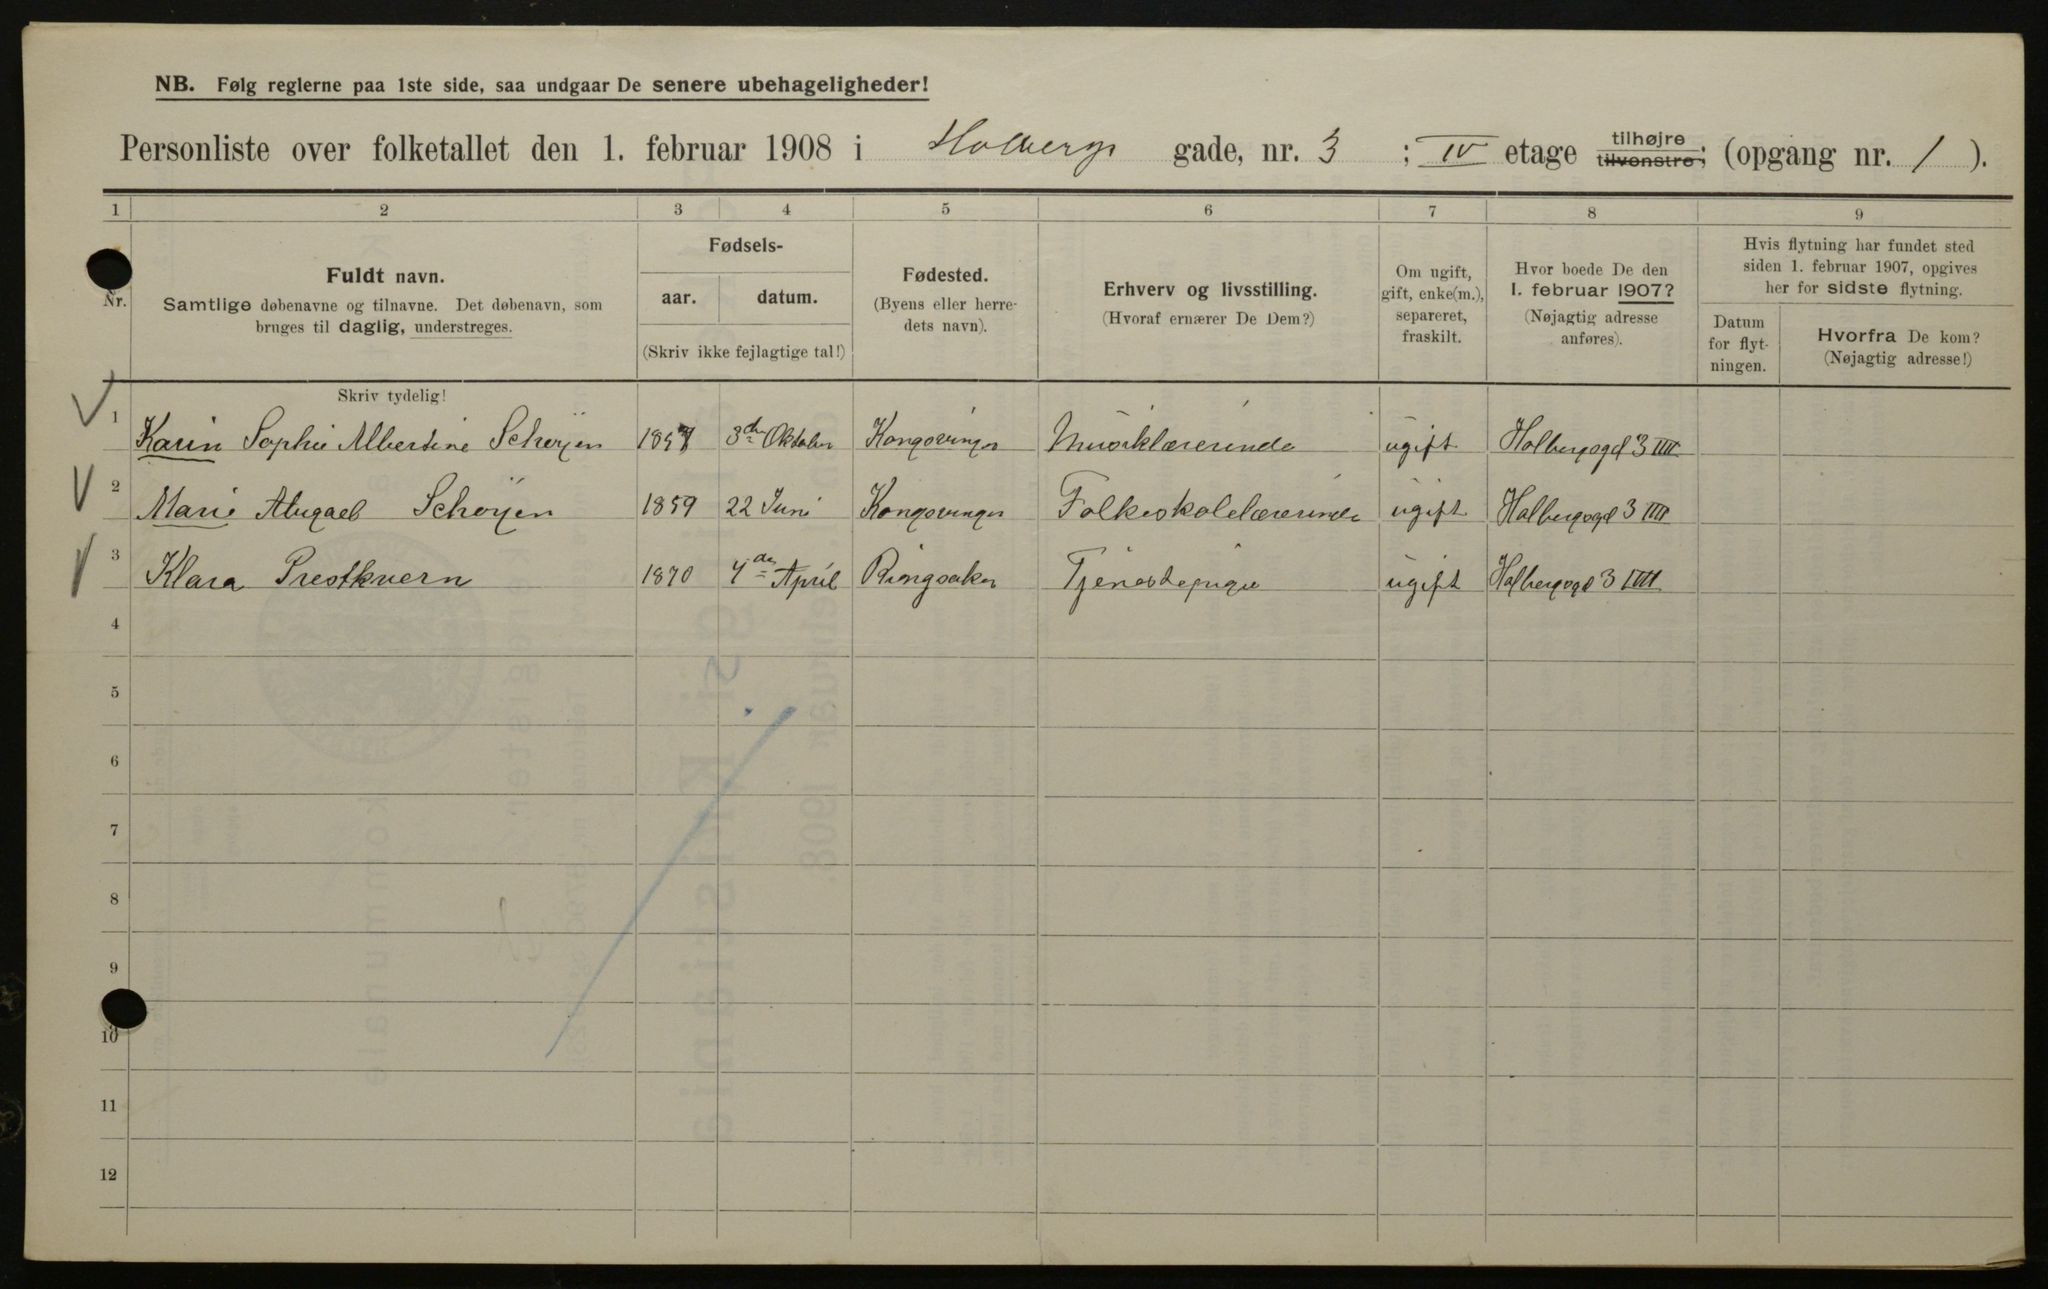 NB. Følg reglerne paa 1ste side, saa undgaar De senere ubehageligheder!
Personliste over folketallet den 1. februar 1908 i Holbergs gade, nr. 3 ; IV etage tilhøjre tilvenstre; (opgang nr. 1 ).
1 2 3 4 5 6 7 8 9
Nr.
Fuldt navn.
Samtlige døbenavne og tilnavne. Det døbenavn, som
bruges til daglig, understreges.
Fødsels-
aar. datum.
(Skriv ikke fejlagtige tal!)
Fødested.
(Byens eller herre-
dets navn).
Erhverv og livsstilling.
(Hvoraf ernærer De Dem?)
Om ugift,
gift, enke(m.),
separeret,
fraskilt.
Hvor boede De den
1. februar 1907?
(Nøjagtig adresse
anføres).
Hvis flytning har fundet sted
siden 1. februar 1907, opgives
her for sidste flytning.
Datum
for flyt-
ningen.
Hvorfra De kom?
(Nøjagtig adresse!)
Skriv tydelig!
1 Karin Sophie Albertine Schøyen 1857 3de Oktober Kongsvinger Musiklærerinde ugift Holbergsgd 3 IIII
2 Marie Abigael Schøyen 1859 22 Juni Kongsvinger Folkeskolelærerinde ugift Holbergsgd 3 IIII
3 Klara Prestkvern 1870 4de April Ringsaker Tjenestepige ugift Holbergsgd 3 IIII
4
5
6
7
8
9
10
11
12